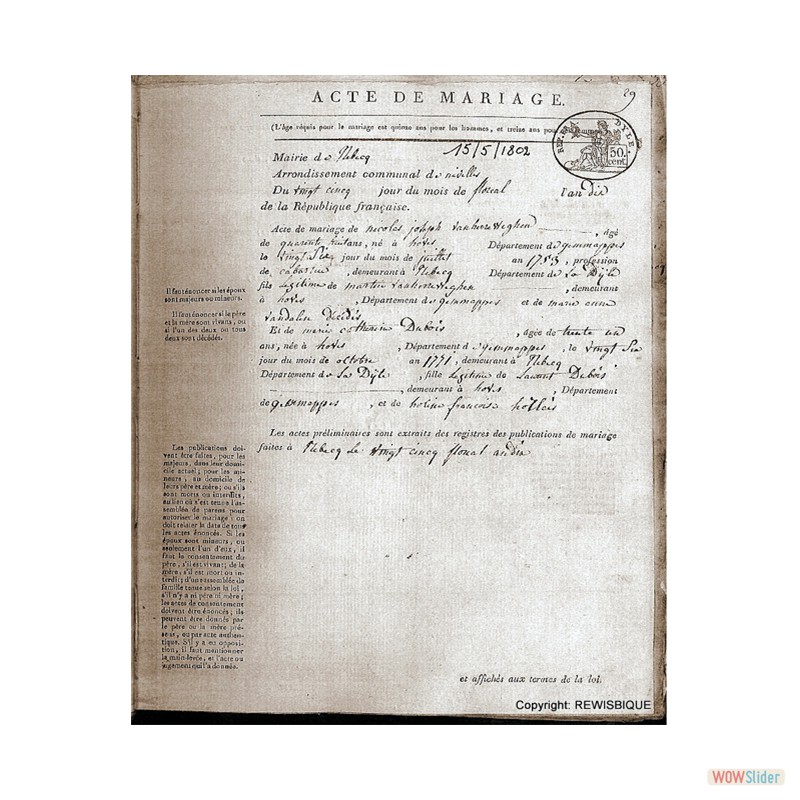 29
ACTE DE MARIAGE.
(L'âge réquis pour le mariage est quinze ans pour les hommes, et treize ans pour les femmes.)
15/5/1802
REP. FRA. DYLE.
50. cent.
Mairie de Rebecq
Arrondissement communal de nivelles
Du vingt cinq jour du mois de floreal l'an dix
de la République française.
Acte de mariage de nicolas joseph vanhoreweghen, âgé
de quarante huitans, né à hoves Département de gemmappes
le vingt six jour du mois de juillet an 1753, profession
de cabartier, demeurant à Rebecq Département de La Dÿle
fils legitime de martin vanhoreweghen, demeurant
à hoves, Département de gemmappes et de marie anne
vandalise décédés
Et de marie catherine Dubois, âgée de trente un
ans, née à hoves, Département de gemmappes, le vingt six
jour du mois de octobre an 1771, demeurant à Rebecq
Département de La Dÿle, fille legitime de Laurent Dubois
, demeurant à hoves, Département
de gemmappes, et de francoise
Les actes préliminaires sont extraits des registres des publications de mariage
faites à Rebecq le vingt cinq floreal an dix
Il faut énoncer si les époux
sont majeurs ou mineurs.
Il faut énoncer si le père
et la mère sont vivans, ou
si l'un des deux ou tous
deux sont décédés.
Les publications doi-
vent être faites, pour les
majeurs, dans leur domi-
cile actuel; pour les mi-
neurs, au domicile de
leurs père et mère; ou s'ils
sont morts ou interdits,
au lieu où s'est tenue l'as-
semblée de parens pour
autoriser le mariage: on
doit relater la date de tous
les actes énoncés. Si les
époux sont mineurs, ou
seulement l'un d'eux, il
faut le consentement du
père, s'il est vivant; de la
mère, s'il est mort ou in-
terdit; d'une assemblée de
famille tenue selon la loi,
s'il n'y a ni père ni mère;
les actes de consentement
doivent être énoncés; ils
peuvent être donnés par
le père ou la mère pré-
sens, ou par acte authen-
tique. S'il y a eu opposi-
tion, il faut mentionner
la main-levée, et l'acte ou
jugement qui l'a donnée.
et affichés aux termes de la loi.
Copyright: REWISBIQUE
WOWSlider